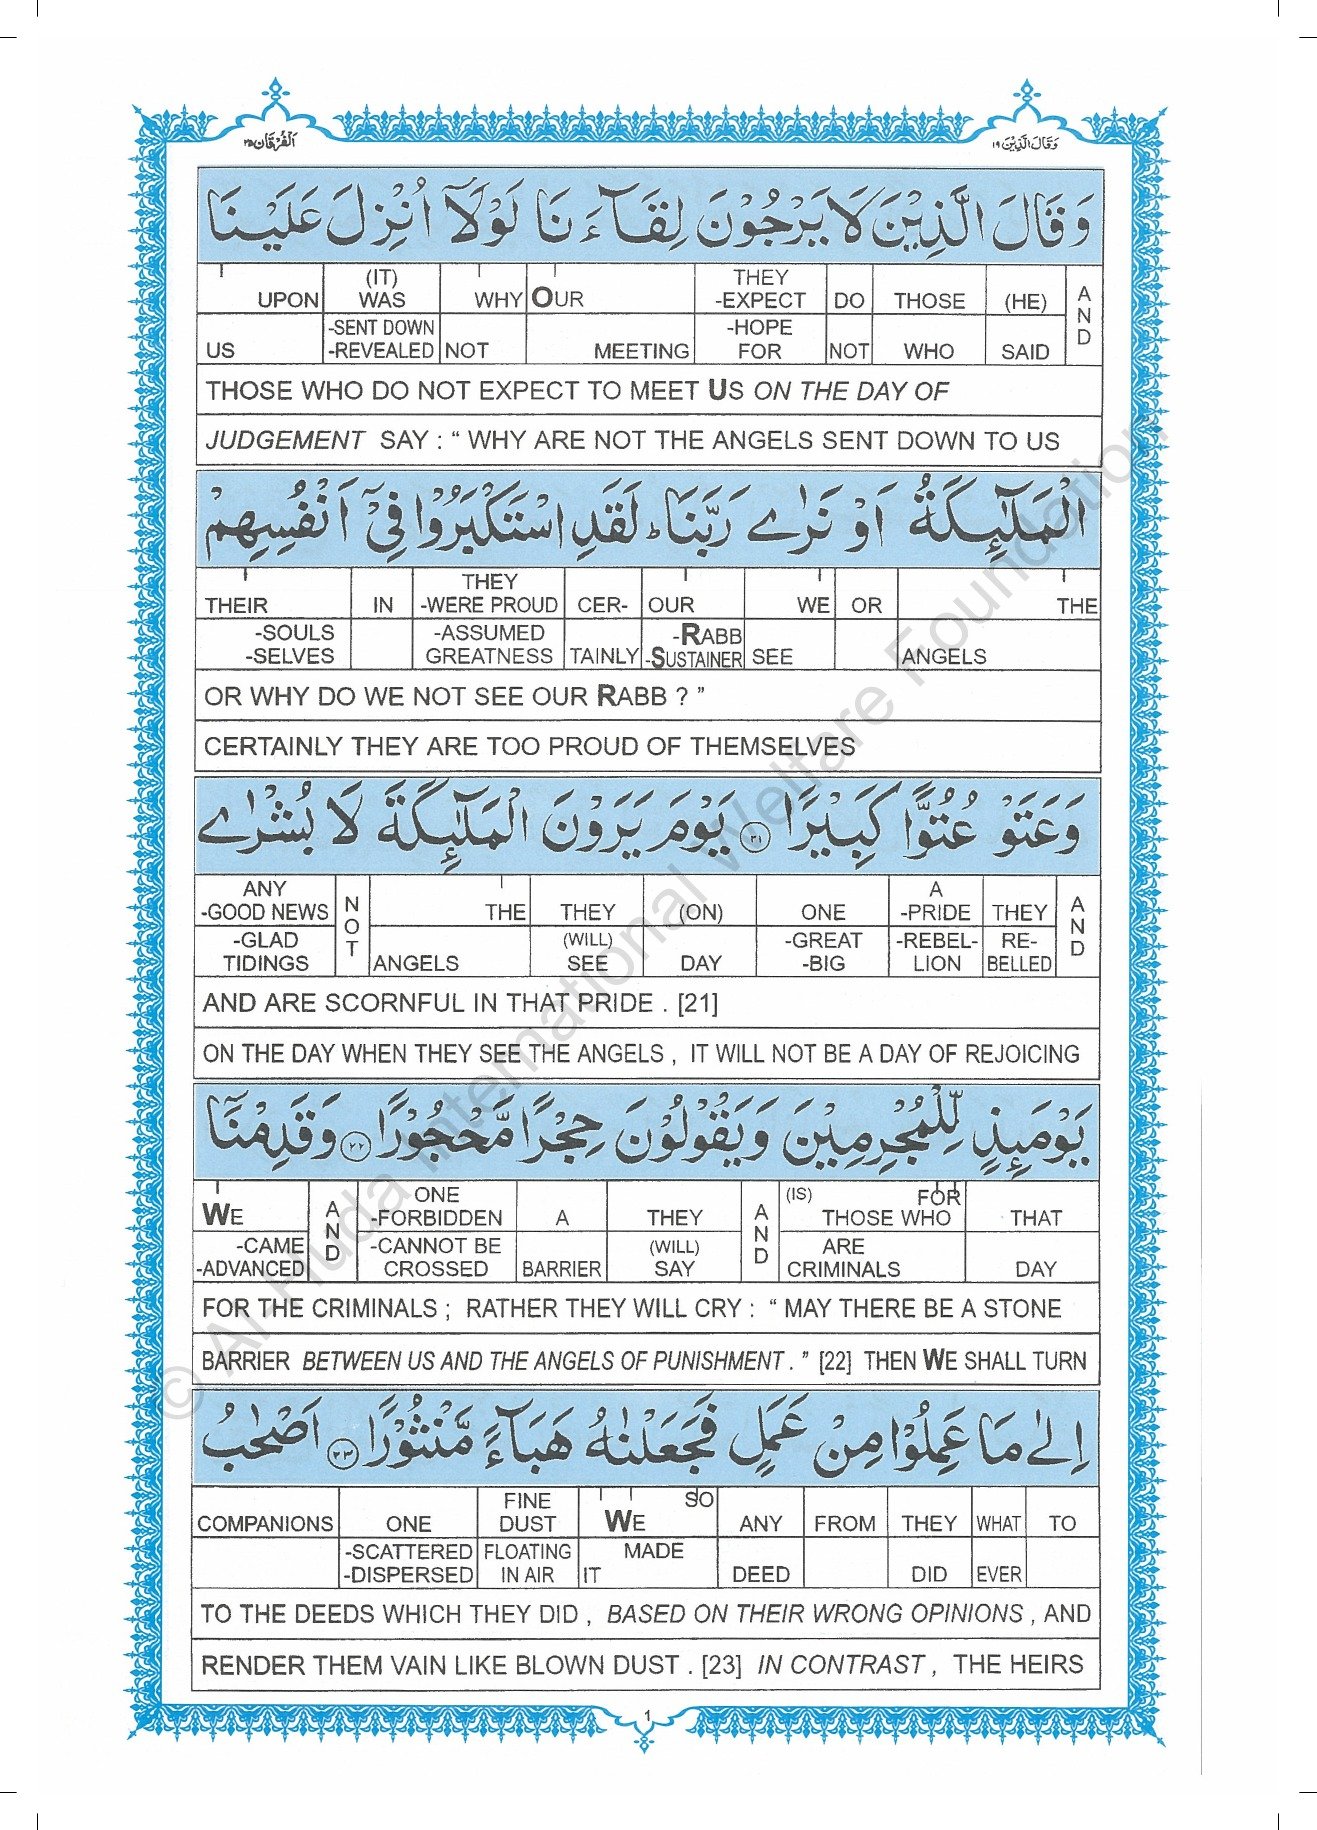 الفُرْقَان ٢٥
وَقَالَ الَّذِيْنَ ١٩
وَ قَالَ الَّذِيْنَ لَا يَرْجُوْنَ لِقَآءَ نَا لَوْ لَاۤ اُنْزِلَ عَلَيْنَا
UPON (IT) WAS WHY OUR THEY -EXPECT DO THOSE (HE) AND
US -SENT DOWN -REVEALED NOT MEETING -HOPE FOR NOT WHO SAID
THOSE WHO DO NOT EXPECT TO MEET US ON THE DAY OF
JUDGEMENT SAY : “ WHY ARE NOT THE ANGELS SENT DOWN TO US
الْمَلٰٓئِكَةُ اَوْ نَرٰى رَبَّنَا ؕ لَقَدِ اسْتَكْبَرُوْا فِيْۤ اَنْفُسِهِمْ
THEIR IN THEY -WERE PROUD CER- OUR WE OR THE
-SOULS -SELVES -ASSUMED GREATNESS TAINLY -RABB -SUSTAINER SEE ANGELS
OR WHY DO WE NOT SEE OUR RABB ? ”
CERTAINLY THEY ARE TOO PROUD OF THEMSELVES
وَ عَتَوْ عُتُوًّا كَبِيْرًا ٢١ يَوْمَ يَرَوْنَ الْمَلٰٓئِكَةَ لَا بُشْرٰى
ANY -GOOD NEWS NOT THE THEY (ON) ONE A -PRIDE THEY AND
-GLAD TIDINGS ANGELS (WILL) SEE DAY -GREAT -BIG -REBEL- LION RE- BELLED
AND ARE SCORNFUL IN THAT PRIDE . [21]
ON THE DAY WHEN THEY SEE THE ANGELS , IT WILL NOT BE A DAY OF REJOICING
يَوْمَئِذٍ لِّلْمُجْرِمِيْنَ وَ يَقُوْلُوْنَ حِجْرًا مَّحْجُوْرًا ٢٢ وَ قَدِمْنَاۤ
WE AND ONE -FORBIDDEN A THEY AND (IS) FOR THOSE WHO THAT
-CAME -ADVANCED -CANNOT BE CROSSED BARRIER (WILL) SAY ARE CRIMINALS DAY
FOR THE CRIMINALS ; RATHER THEY WILL CRY : “ MAY THERE BE A STONE
BARRIER BETWEEN US AND THE ANGELS OF PUNISHMENT . ” [22] THEN WE SHALL TURN
اِلٰى مَا عَمِلُوْا مِنْ عَمَلٍ فَجَعَلْنٰهُ هَبَآءً مَّنْثُوْرًا ٢٣ اَصْحٰبُ
COMPANIONS ONE FINE DUST WE SO ANY FROM THEY WHAT TO
-SCATTERED -DISPERSED FLOATING IN AIR IT MADE DEED DID EVER
TO THE DEEDS WHICH THEY DID , BASED ON THEIR WRONG OPINIONS , AND
RENDER THEM VAIN LIKE BLOWN DUST . [23] IN CONTRAST , THE HEIRS
1
© Al-Huda International Welfare Foundation